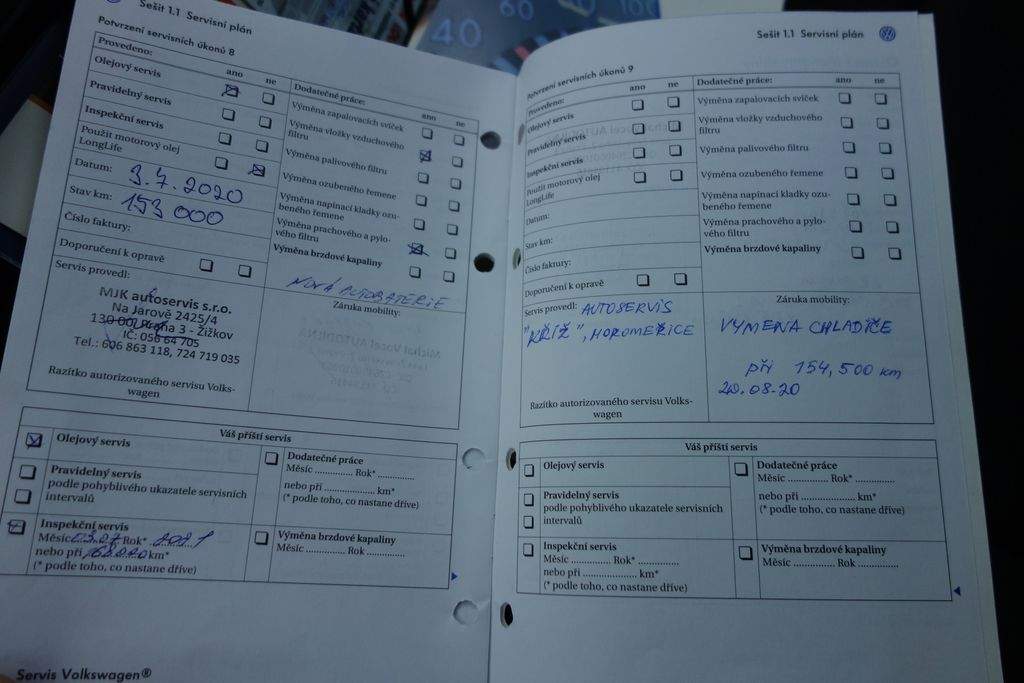 40
60
100
Sešit 1.1 Servisní plán
Potvrzení servisních úkonů 8
Provedeno:
ano
ne
Olejový servis
Pravidelný servis
Inspekční servis
Použit motorový olej
LongLife
Datum: 3.7.2020
Stav km: 153 000
Číslo faktury:
Doporučení k opravě
Servis provedl:
MJK autoservis s.r.o.
Na Jarově 2425/4
130 00, Praha 3 - Žižkov
IČ: 056 64 705
Tel.: 606 863 118, 724 719 035
Razítko autorizovaného servisu Volks-
wagen
Dodatečné práce:
ano
ne
Výměna zapalovacích svíček
Výměna vložky vzduchového
filtru
Výměna palivového filtru
Výměna ozubeného řemene
Výměna napínací kladky ozu-
beného řemene
Výměna prachového a pylo-
vého filtru
Výměna brzdové kapaliny
NOVÁ AUTOBATERIE
Záruka mobility:
Váš příští servis
Olejový servis
Pravidelný servis
podle pohyblivého ukazatele servisních
intervalů
Inspekční servis
Měsíc 03.07 Rok* 2021
nebo při km*
(* podle toho, co nastane dříve)
Dodatečné práce
Měsíc ............... Rok* ...............
nebo při ..................... km*
(* podle toho, co nastane dříve)
Výměna brzdové kapaliny
Měsíc ............... Rok ...............
Servis Volkswagen®
Sešit 1.1 Servisní plán
Potvrzení servisních úkonů 9
Provedeno:
ano
ne
Olejový servis
Pravidelný servis
Inspekční servis
Použit motorový olej
LongLife
Datum:
Stav km:
Číslo faktury:
Doporučení k opravě
Servis provedl: AUTOSERVIS
"KŘÍŽ", HOROMEŘICE
Razítko autorizovaného servisu Volks-
wagen
Dodatečné práce:
ano
ne
Výměna zapalovacích svíček
Výměna vložky vzduchového
filtru
Výměna palivového filtru
Výměna ozubeného řemene
Výměna napínací kladky ozu-
beného řemene
Výměna prachového a pylo-
vého filtru
Výměna brzdové kapaliny
Záruka mobility:
VÝMĚNA CHLADIČE
při 154,500 km
20.08.20
Váš příští servis
Olejový servis
Pravidelný servis
podle pohyblivého ukazatele servisních
intervalů
Inspekční servis
Měsíc ............... Rok* ...............
nebo při ..................... km*
(* podle toho, co nastane dříve)
Dodatečné práce
Měsíc ............... Rok* ...............
nebo při ..................... km*
(* podle toho, co nastane dříve)
Výměna brzdové kapaliny
Měsíc ............... Rok ...............